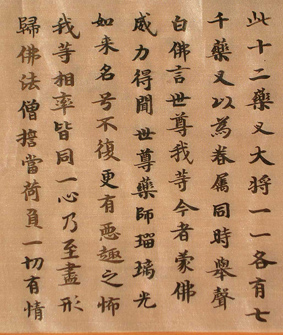 此十二藥叉大将一一各有七
千藥叉以為眷属同時舉聲
白佛言世尊我等今者蒙佛
威力得聞世尊藥師瑠璃光
如来名号不復更有惡趣之怖
我等相率皆同一心乃至盡形
歸佛法僧誓當荷負一切有情